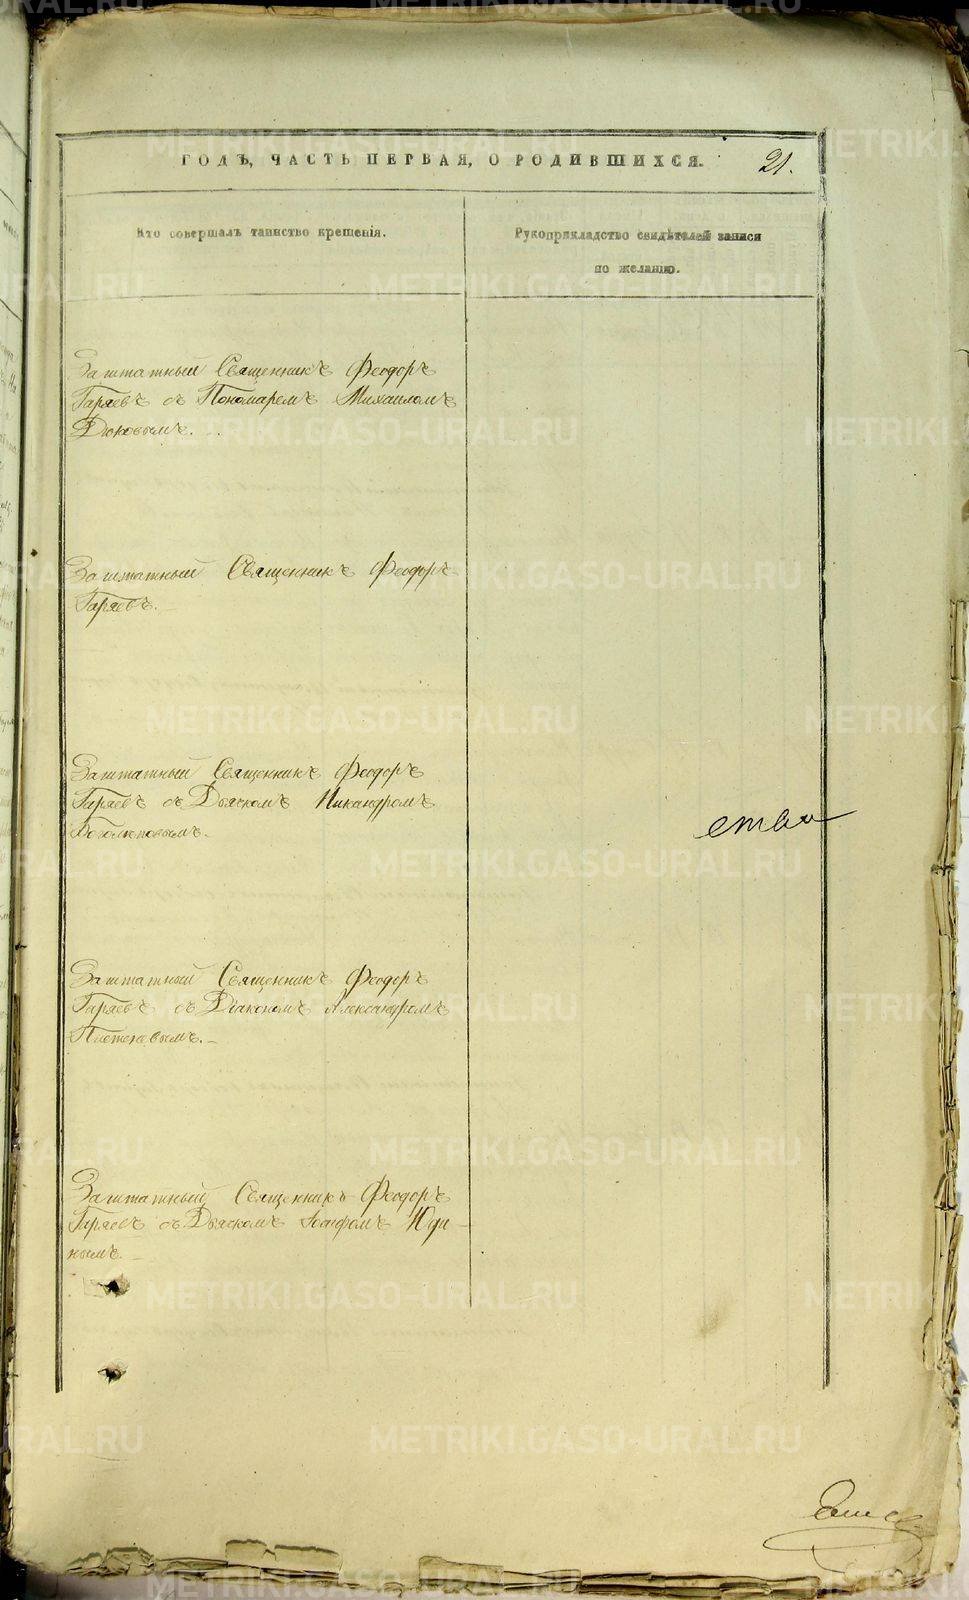 ГОДЪ, ЧАСТЬ ПЕРВАЯ, О РОДИВШИХСЯ.
21.
Кто совершалъ таинство крещенія.
Рукоприкладство свидѣтелей записи
по желанію.
Заштатный Священникъ Феодоръ
Гаряевъ съ Пономаремъ Михаиломъ
Дюковымъ.
Заштатный Священникъ Феодоръ
Гаряевъ.
Заштатный Священникъ Феодоръ
Гаряевъ съ Дьячкомъ Никандромъ
Боголюповымъ.
ства
Заштатный Священникъ Феодоръ
Гаряевъ съ Діакономъ Александромъ
Плетеневымъ.
Заштатный Священникъ Феодоръ
Гаряевъ съ Дьячкомъ Іосифомъ Юди-
нымъ.
METRIKI.GASO-URAL.RU